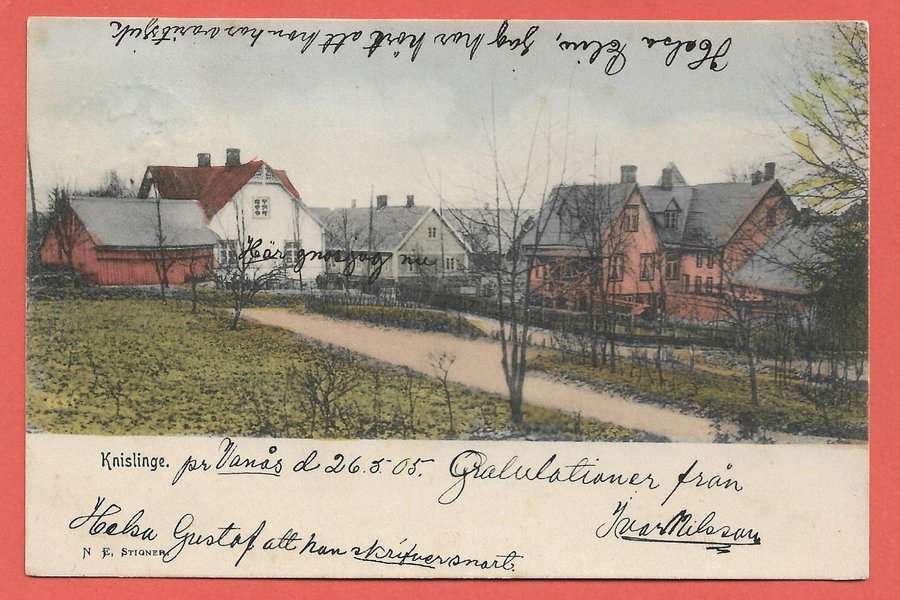 Helsa Elin, jag har hört att hon har varit sjuk
men hälsorör
Knislinge. pr Vanås d 26.5.05. Gratulationer från
Ivar Nilsson
Helsa Gustaf att han skrifver snart.
N. E. Stigner.